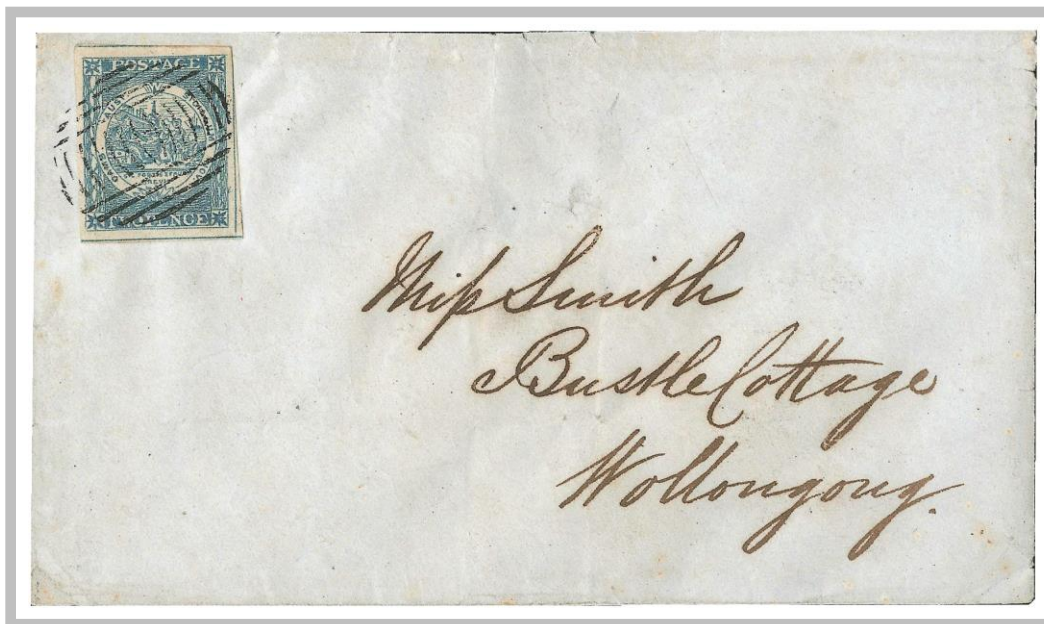 POSTAGE
TWO PENCE
Miſs Smith
Bustle Cottage
Wollongong.